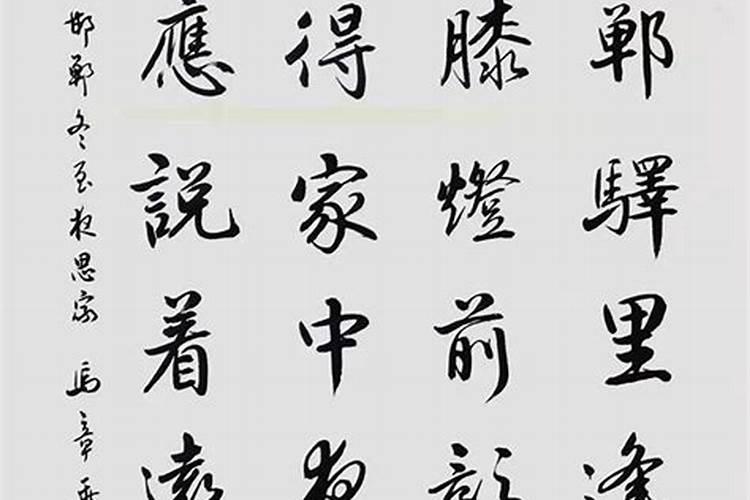 郸驛里逢
膝燈前影
得家中夜
應説着遠
邯鄲冬至夜思家 馬章